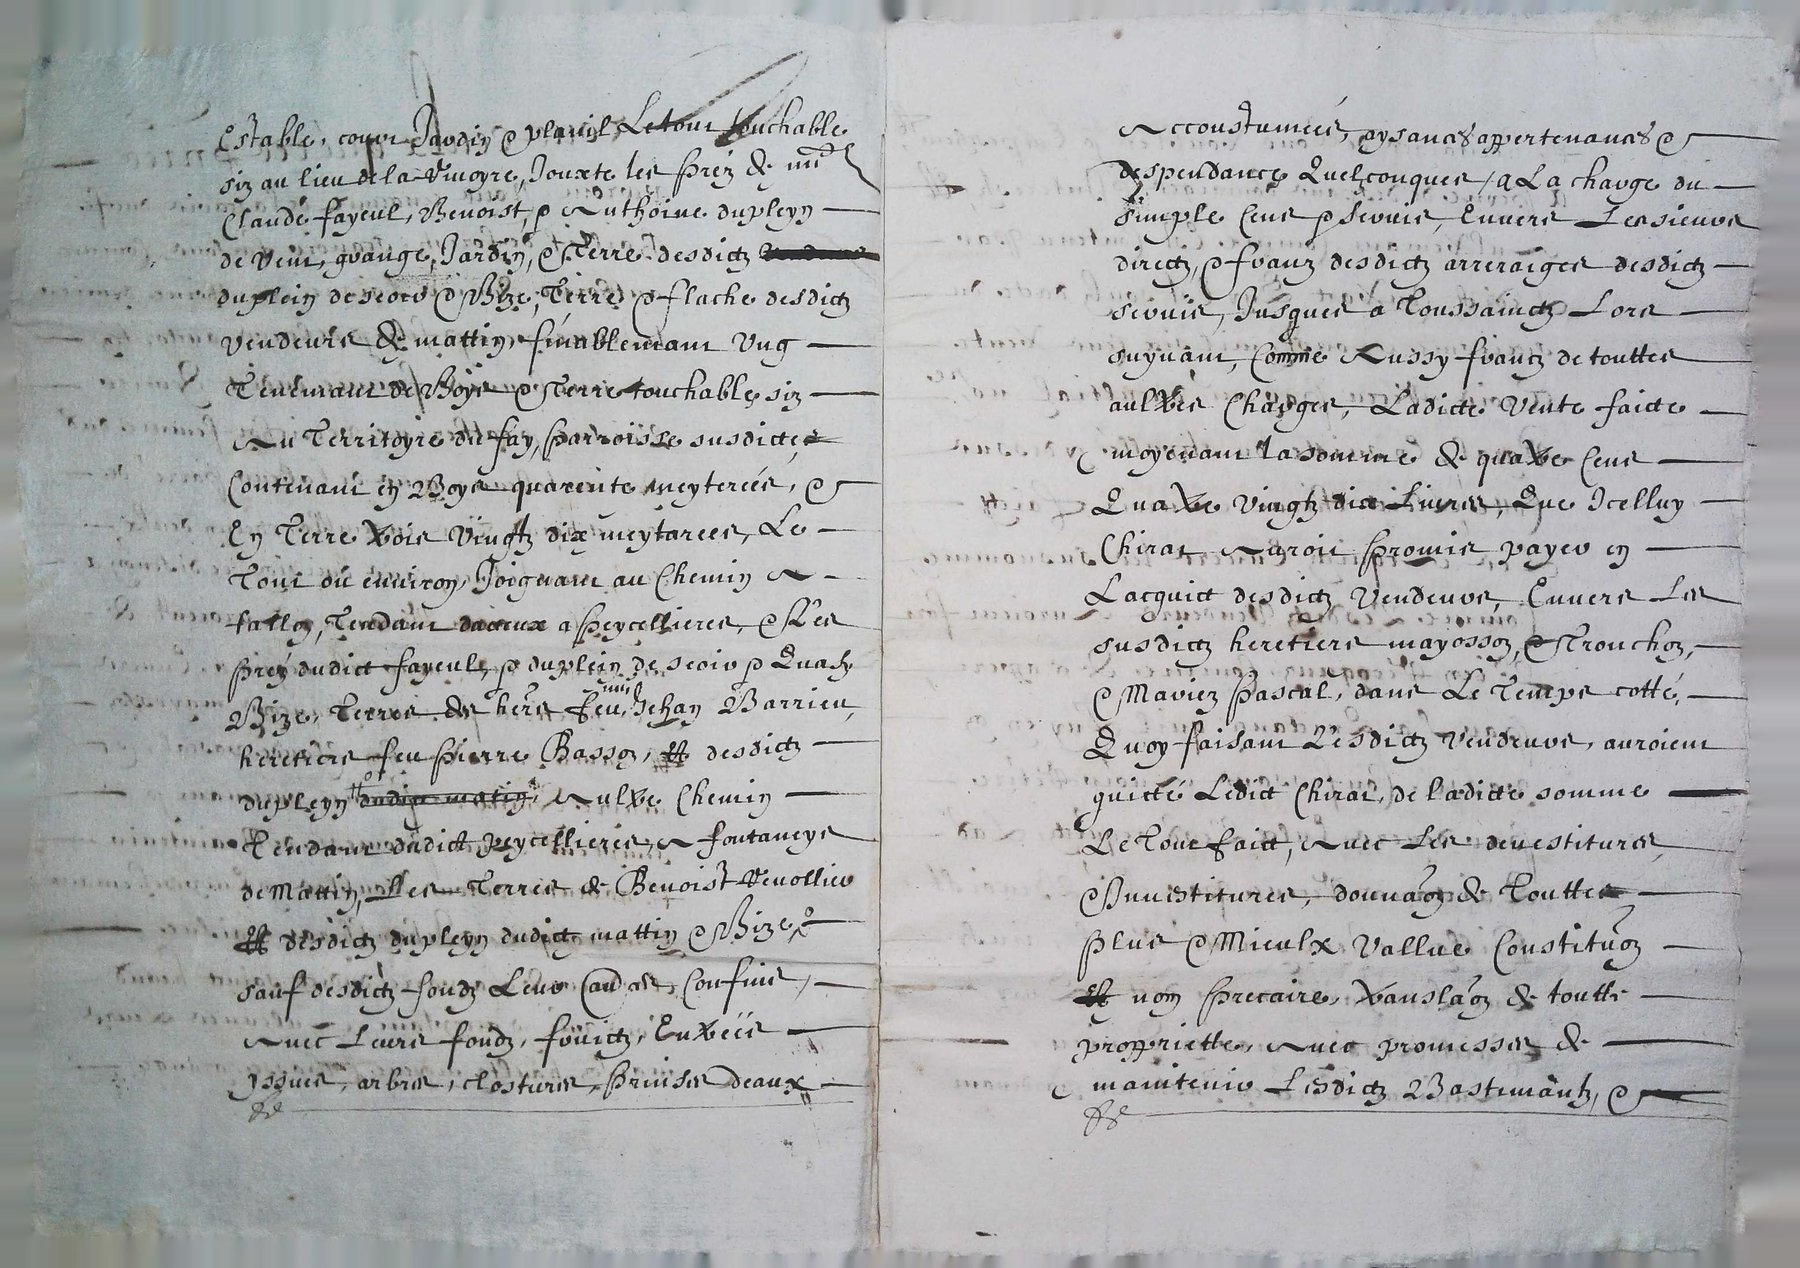 Estable, cour Jardin & plassil Le tout touchable
siz au lieu de la Vinoyre, Jouxte les prez de
Claude fayeul, Benoist, & Anthoine dupleyn
de Vent, grange, Jardin, & Terre desdictz
duplein & Bize, Terre & flache desdictz
vendeurs & mattin, semblemant Ung
Tenemant de Boys & Terre touchable siz
Au Territoyre du fay, parroisse susdicte
Contenant en Boys quarente meyterées, &
En Terre trois Vingtz dix meytarees, Le
Tout ou environ, Joignant au Chemin
Tendant a peycellieres, & Les
prez dudict fayeul, & duplein de &
Bize, Terres de Jehan Barrieu,
heretiers feu pierre Basson, Et desdictz
dupleyn Aultre Chemin
Tendant dudict peycellieres, A fontaneys
de Mattin, Les Terres de Benoist
Et desdictz dupleyn dudict mattin & Bize,
sauf desdictz fondz Leurs Confins,
Avec Leurs fondz, fruictz, Entrées
yssues, arbres, clostures, prinses deaux
Accoustumées, aysances appertenances &
despendances Quelzconques, A La charge du
simple Cens & servis, Envers Les sieurs
directz, & francz desdictz arreraiges desdictz
servis, Jusques a Toussainctz Lors
suyvant, Comme Aussy francz de touttes
aultres Charges, Ladicte Vente faicte
moyenant la somme de quatre Cens
Quatre Vingtz dix Livres, Que Icelluy
Chirat Auroit promis payer en
Lacquict desdictz Vendeurs, Envers Les
susdictz heretiers mayosson, & Tronchon,
& Mariez pascal, dans Le Temps cotté,
Quoy faisant Lesdictz Vendeurs, auroient
quicté Ledict Chirat, de Ladicte somme
Le Tout faict, Avec Les devestitures,
& Investitures, donnaon de Touttes
plus & Mieulx Vallue Constituon
Et nom precaire, translaon de toutte
proprietté, Avec promesses de
maintenir Lesdictz Bastimantz, &